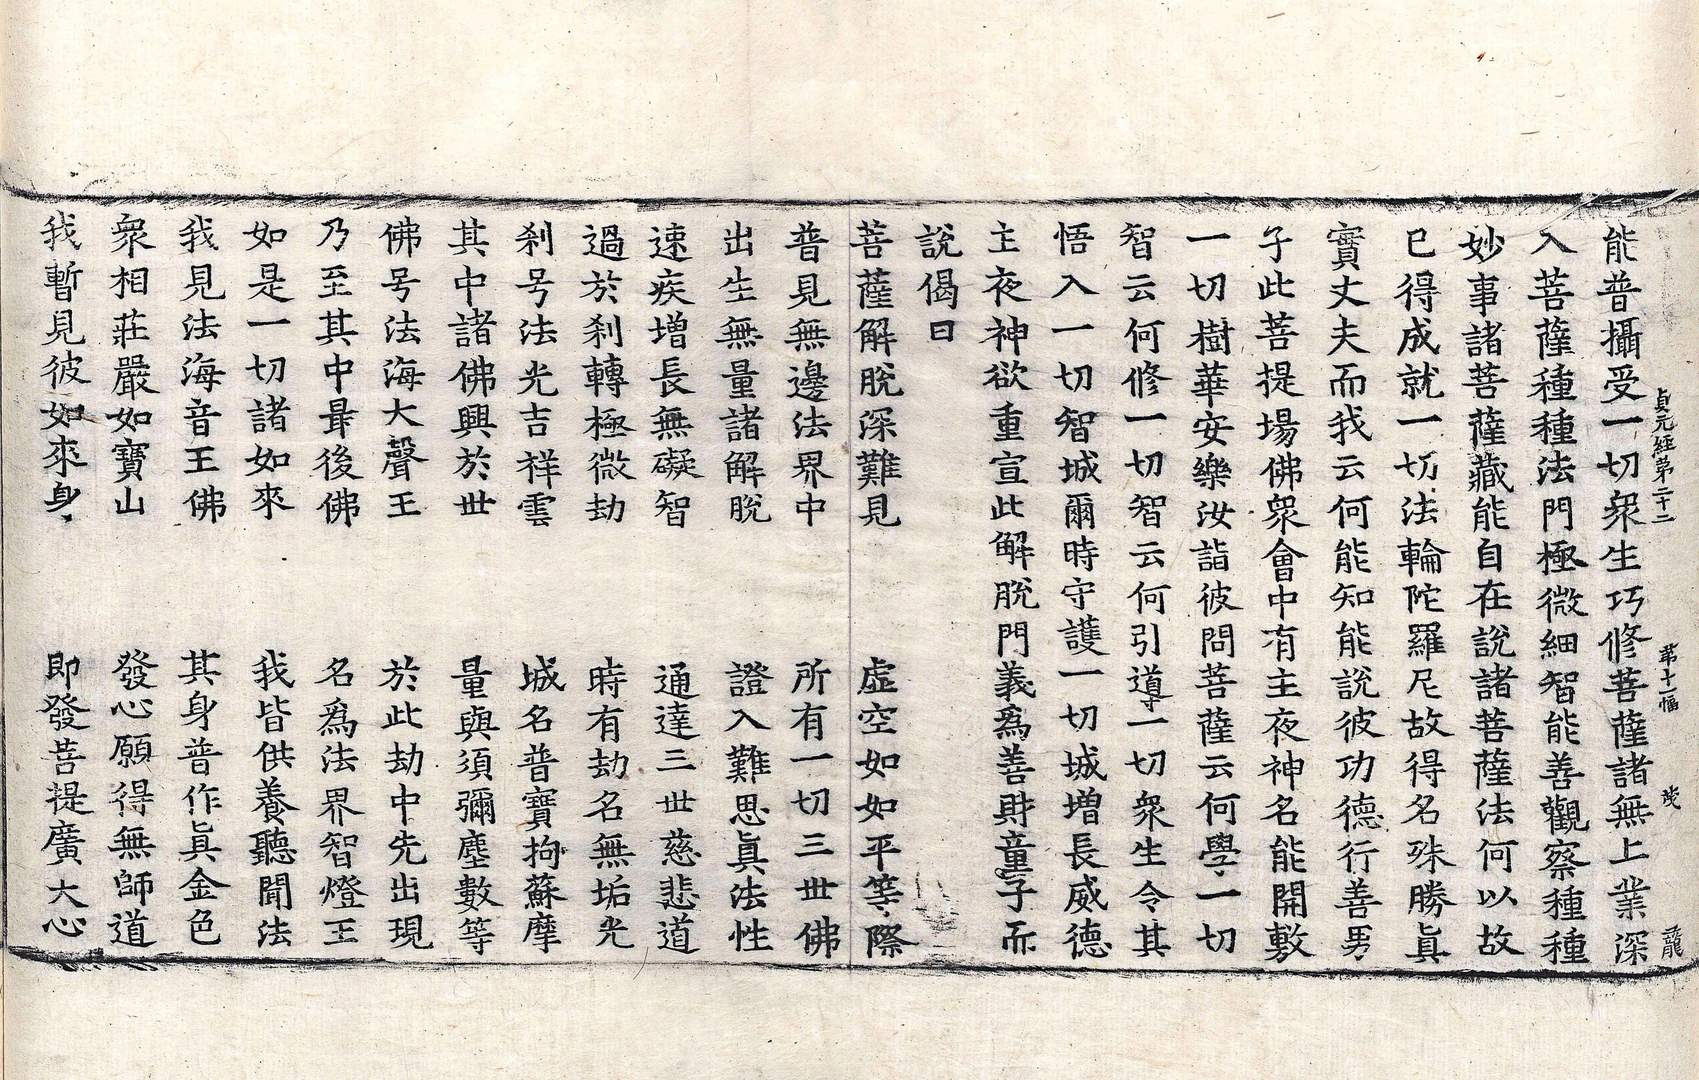 貞元經第二十二 第十一幅 茂 龍
能普攝受一切衆生巧修菩薩諸無上業深
入菩薩種種法門極微細智能善觀察種種
妙事諸菩薩藏能自在說諸菩薩法何以故
已得成就一切法輪陀羅尼故得名殊勝眞
實丈夫而我云何能知能說彼功德行善男
子此菩提場佛衆會中有主夜神名能開敷
一切樹華安樂汝詣彼問菩薩云何學一切
智云何修一切智云何引導一切衆生令其
悟入一切智城爾時守護一切城增長威德
主夜神欲重宣此解脫門義爲善財童子而
說偈曰
菩薩解脫深難見 虛空如如平等際
普見無邊法界中 所有一切三世佛
出生無量諸解脫 證入難思眞法性
速疾增長無礙智 通達三世慈悲道
過於刹轉極微劫 時有劫名無垢光
刹号法光吉祥雲 城名普寶拘蘇摩
其中諸佛興於世 量與須彌塵數等
佛号法海大聲王 於此劫中先出現
乃至其中最後佛 名爲法界智燈王
如是一切諸如來 我皆供養聽聞法
我見法海音王佛 其身普作眞金色
衆相莊嚴如寶山 發心願得無師道
我暫見彼如來身 即發菩提廣大心